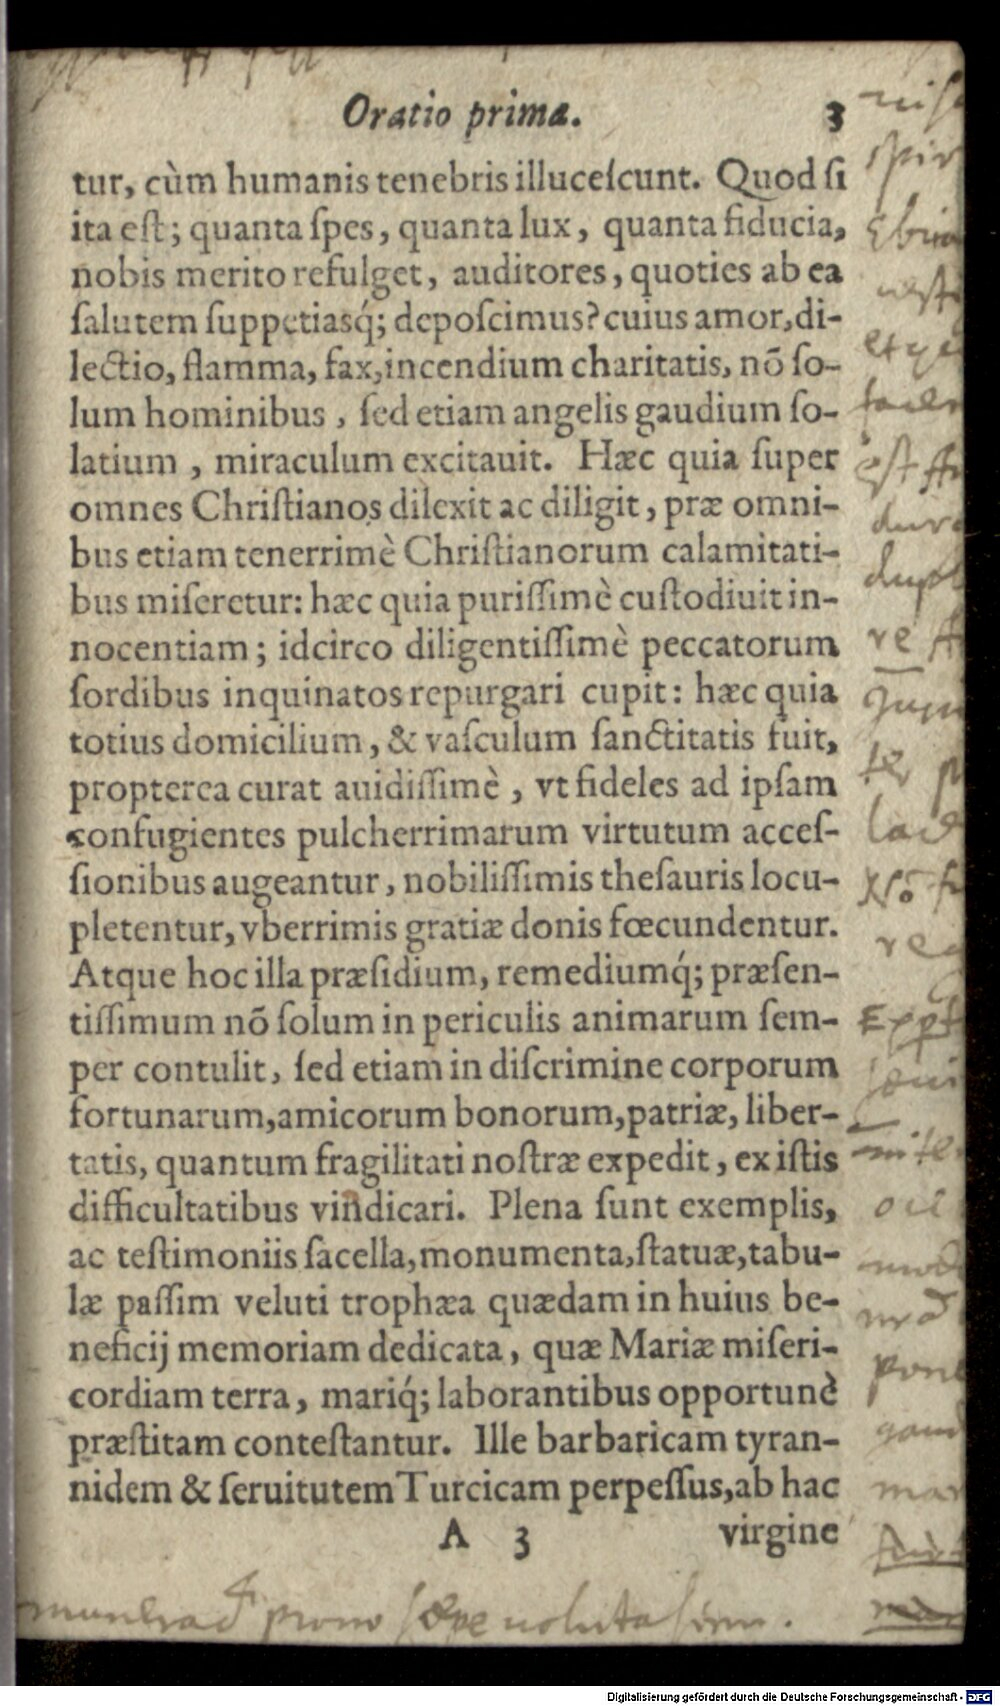 Oratio prima. 3
tur, cùm humanis tenebris illuceſcunt. Quod ſi
ita eſt; quanta ſpes, quanta lux, quanta fiducia,
nobis merito refulget, auditores, quoties ab ea
ſalutem ſuppetiasq́; depoſcimus? cuius amor, di-
lectio, flamma, fax, incendium charitatis, nō ſo-
lum hominibus, ſed etiam angelis gaudium ſo-
latium, miraculum excitauit. Hæc quia ſuper
omnes Chriſtianos dilexit ac diligit, præ omni-
bus etiam tenerrimè Chriſtianorum calamitati-
bus miſeretur: hæc quia puriſſimè cuſtodiuit in-
nocentiam; idcirco diligentiſſimè peccatorum
ſordibus inquinatos repurgari cupit: hæc quia
totius domicilium, & vaſculum ſanctitatis fuit,
propterea curat auidiſſimè, vt fideles ad ipſam
confugientes pulcherrimarum virtutum acceſ-
ſionibus augeantur, nobiliſſimis theſauris locu-
pletentur, vberrimis gratiæ donis fœcundentur.
Atque hoc illa præſidium, remediumq́; præſen-
tiſſimum nō ſolum in periculis animarum ſem-
per contulit, ſed etiam in diſcrimine corporum
fortunarum, amicorum bonorum, patriæ, liber-
tatis, quantum fragilitati noſtræ expedit, ex iſtis
difficultatibus vindicari. Plena ſunt exemplis,
ac teſtimoniis ſacella, monumenta, ſtatuæ, tabu-
læ paſſim veluti trophæa quædam in huius be-
neficij memoriam dedicata, quæ Mariæ miſeri-
cordiam terra, mariq́; laborantibus opportunè
præſtitam conteſtantur. Ille barbaricam tyran-
nidem & ſeruitutem Turcicam perpeſſus, ab hac
A 3 virgine
Digitalisierung gefördert durch die Deutsche Forschungsgemeinschaft - DFG